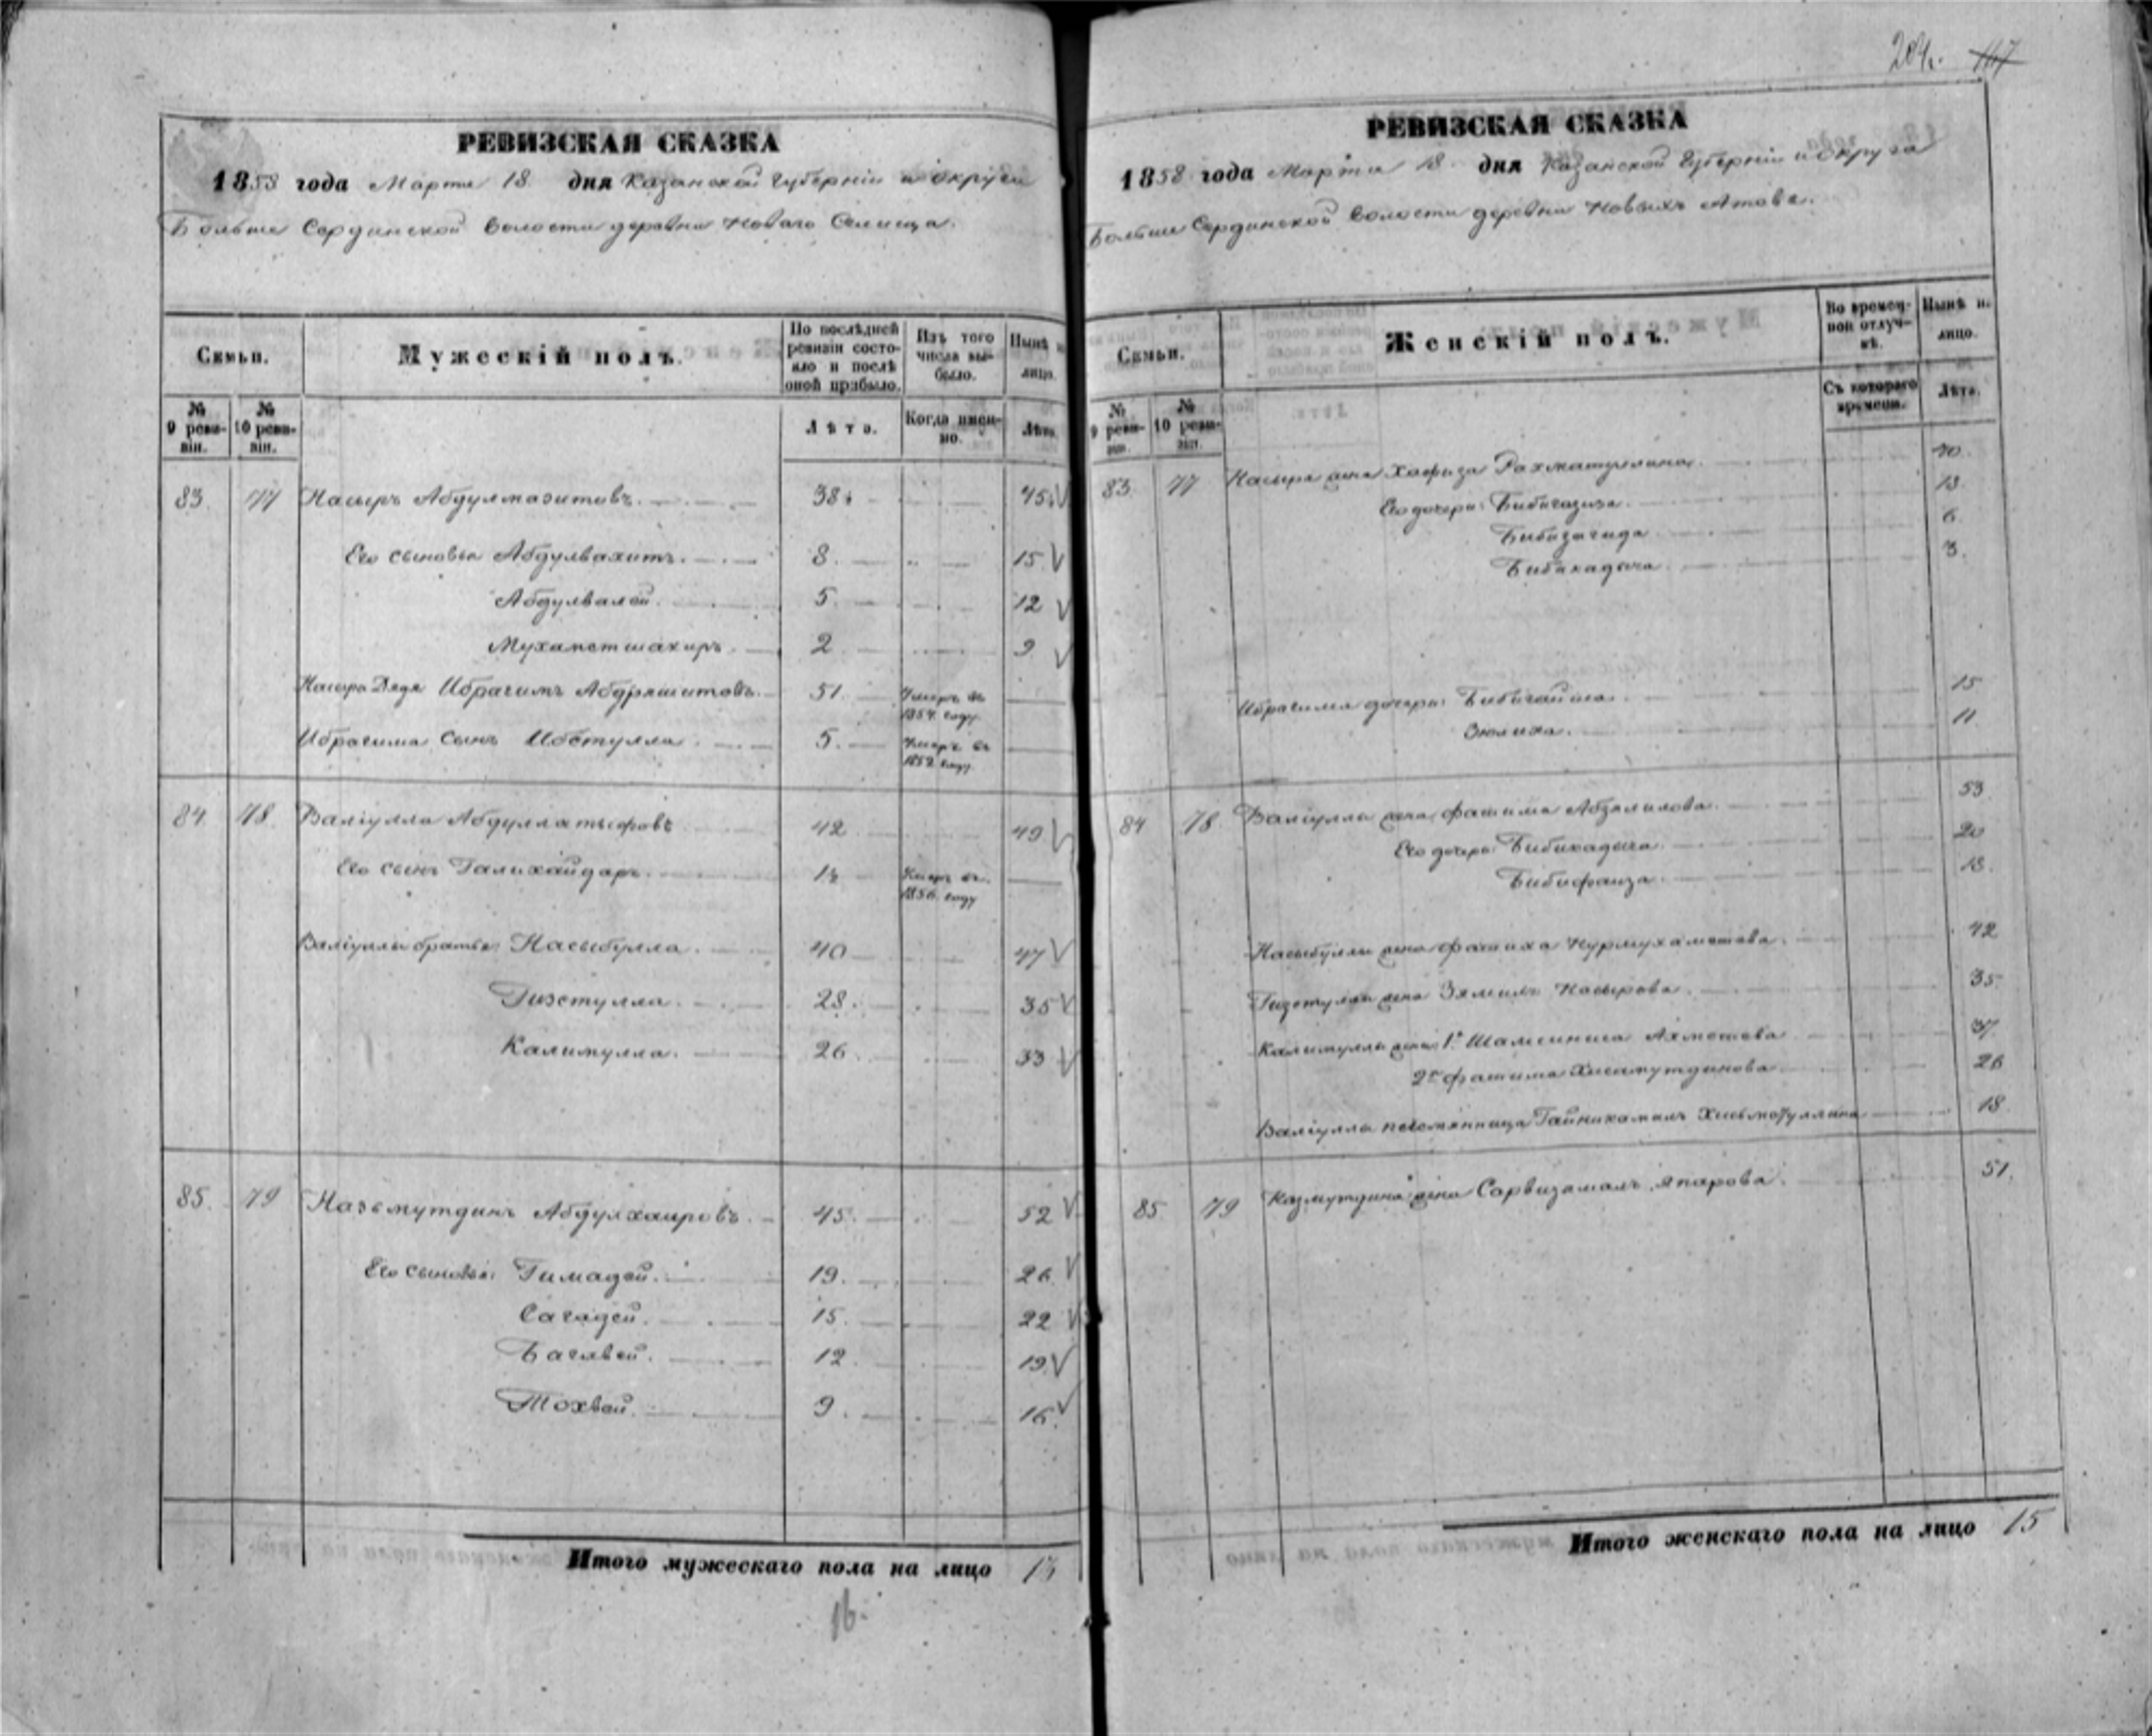 204.
РЕВИЗСКАЯ СКАЗКА
1858 года Марта 18 дня Казанской Губерніи и округа
Больше Сердинской волости деревни Новаго Селища.
Семьи.
Мужескій полъ.
По послѣдней ревизіи состояло и послѣ оной прибыло.
Изъ того числа выбыло.
Нынѣ на лицо.
№ 9 ревизіи.
№ 10 ревизіи.
Лѣта.
Когда именно.
Лѣта.
83. 77 Насыръ Абдулмазитовъ. 38. 45.
Его сыновья Абдулвахитъ. 8. 15
Абдулвалей. 5. 12
Мухаметшакиръ. 2 9
Насыра Дядя Ибрагимъ Абдряшитовъ. 51. Умеръ въ 1854. году.
Ибрагима сынъ 5. Умеръ въ 1852 году.
84. 78. Валіулла Абдуллатыфовъ 42 49
Его сынъ Галихайдаръ. Умеръ въ 1856. году
Валіуллы братья: Насыбулла. 40 47
Гизетулла. 28. 35
Калимулла. 26 33
85. 79 Назьмутдинъ Абдулхаировъ. 45. 52
Его сыновья: Гимадей. 19. 26.
Сагадей. 15. 22
Багавей. 12. 19.
Тохвей. 9. 16.
Итого мужескаго пола на лицо 13
16.
РЕВИЗСКАЯ СКАЗКА
1858 года Марта 18 дня Казанской Губерніи и округа
Больше Сердинской волости деревни Новыхъ Атовъ.
Семьи.
Женскій полъ.
Во временной отлучкѣ.
Нынѣ на лицо.
№ 9 ревизіи.
№ 10 ревизіи.
Съ котораго времени.
Лѣта.
83. 77 Насыра жена Хафиза Рахматуллина. 40.
Его дочери: Бибигазиза. 13.
Бибизагида 6.
Бибихадыча 3.
Ибрагима дочери: Бибигайша 15
Зюлиха. 11.
84 78. Валіуллы жена Фатима Абзялилова. 53
Его дочери: Бибихадыча. 20
Бибифаиза. 18.
Насыбуллы жена Фатиха Нурмухаметова. 42
Гизетуллы жена Зямиль Насырова. 35
Калимуллы жены 1я Шамсиниса Ахметова 37.
2я Фатима Хисамутдинова 26
Валіулла племянница Гайникамалъ 18.
85. 79 Назмутдина жена Сарвизамалъ Япарова. 51.
Итого женскаго пола на лицо 15